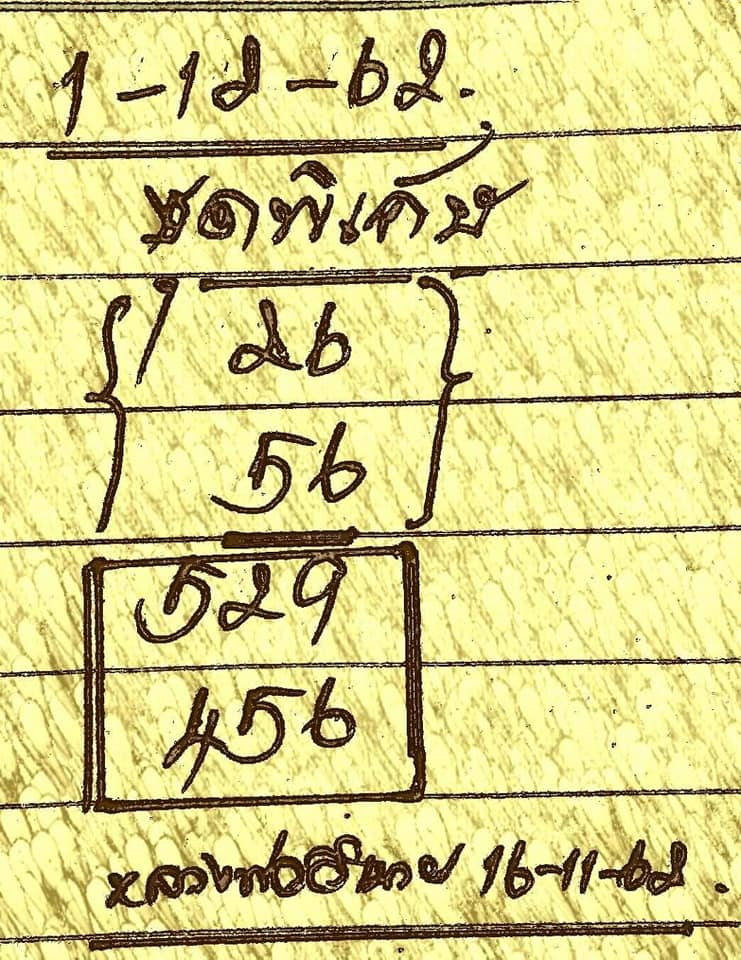 1-12-62.
ชุดพิเศษ
26
56
529
456
หลวงพ่อ 16-11-62.